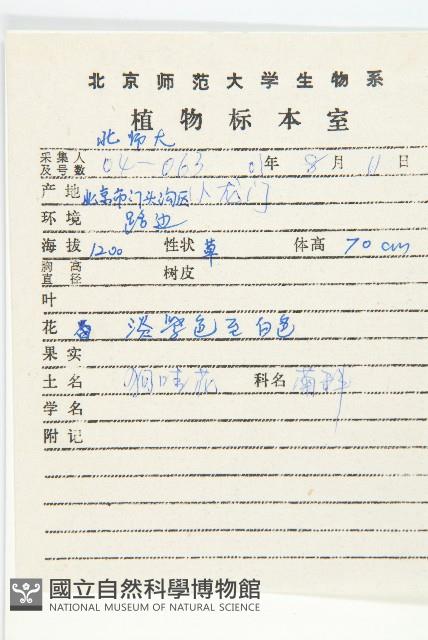 北京师范大学生物系
植物标本室
北师大
采集人及号数 04-063 01年 8月 11日
产地 北京市门头沟区小龙门
环境 路边
海拔 1200 性状 草 体高 70cm
胸高直径 树皮
叶
花 淡紫色至白色
果实
土名 狗哇花 科名 菊科
学名
附记
國立自然科學博物館
NATIONAL MUSEUM OF NATURAL SCIENCE